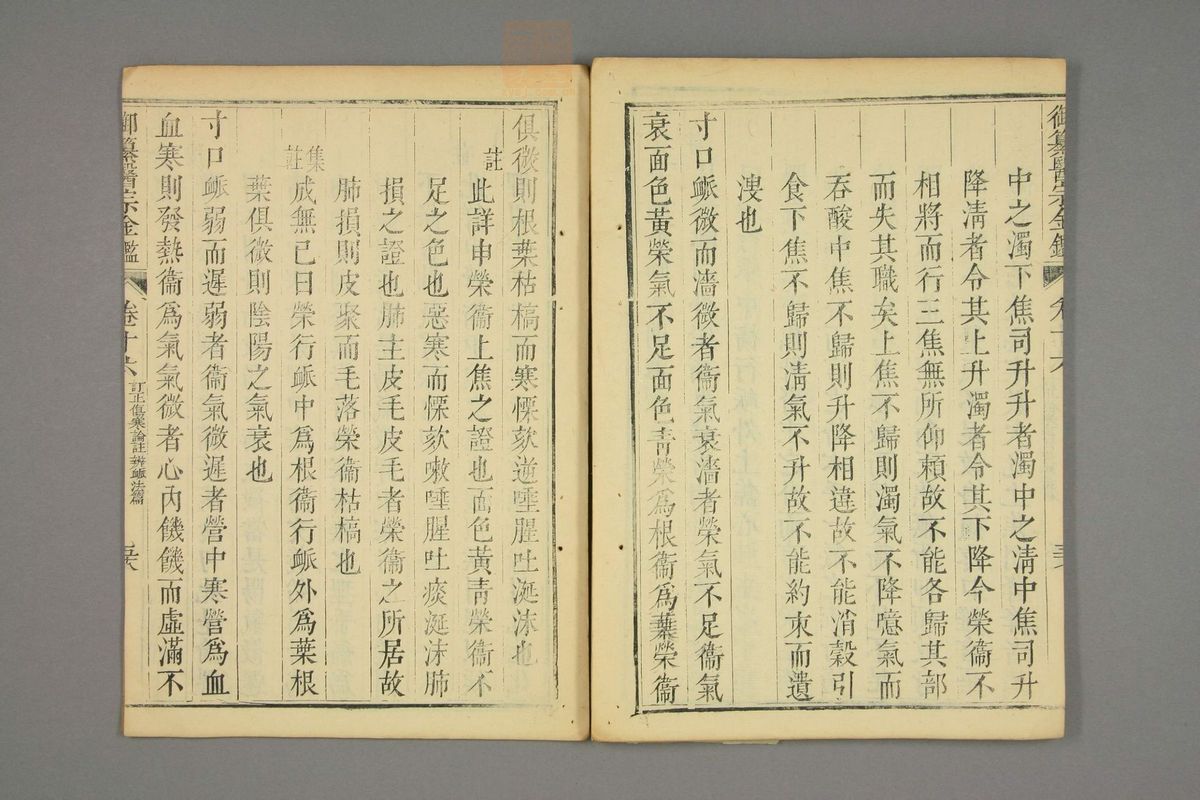 御纂醫宗金鑑
卷十六
中之濁下焦司升升者濁中之淸中焦司升
降淸者令其上升濁者令其下降今榮衞不
相將而行三焦無所仰賴故不能各歸其部
而失其職矣上焦不歸則濁氣不降噫氣而
吞酸中焦不歸則升降相違故不能消穀引
食下焦不歸則淸氣不升故不能約束而遺
溲也
寸口衇微而濇微者衞氣衰濇者榮氣不足衞氣
衰面色黃榮氣不足面色靑榮爲根衞爲葉榮衞
俱微則根葉枯槁而寒慄欬逆唾腥吐涎沫也
註此詳申榮衞上焦之證也面色黃靑榮衞不
足之色也惡寒而慄欬嗽唾腥吐痰涎沫肺
損之證也肺主皮毛皮毛者榮衞之所居故
肺損則皮聚而毛落榮衞枯槁也
集註成無己曰榮行衇中爲根衞行衇外爲葉根
葉俱微則陰陽之氣衰也
寸口衇弱而遲弱者衞氣微遲者營中寒營爲血
血寒則發熱衞爲氣氣微者心內饑饑而虛滿不
御纂醫宗金鑑
卷十六
訂正傷寒論註辨衇法篇